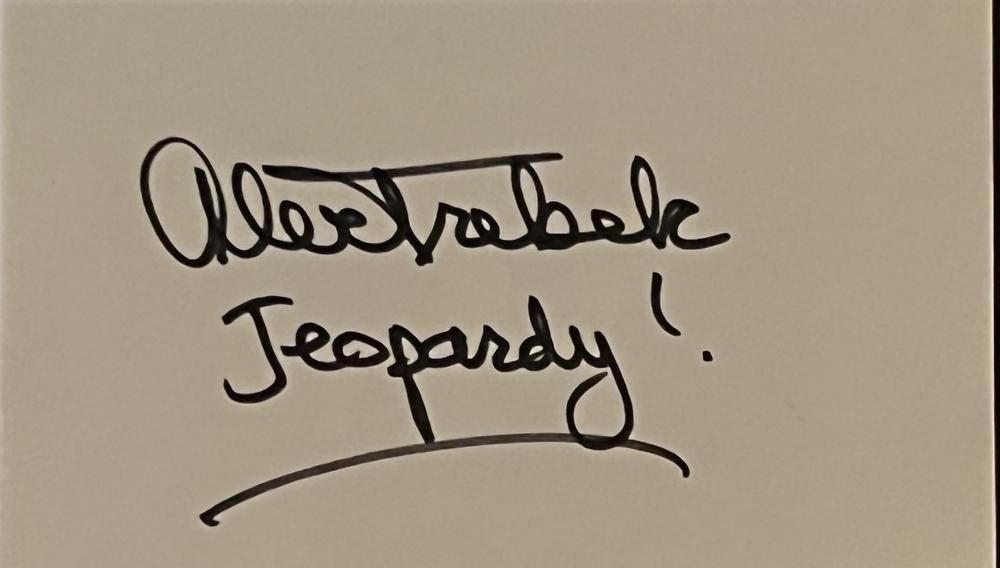 Alex Trebek
Jeopardy!